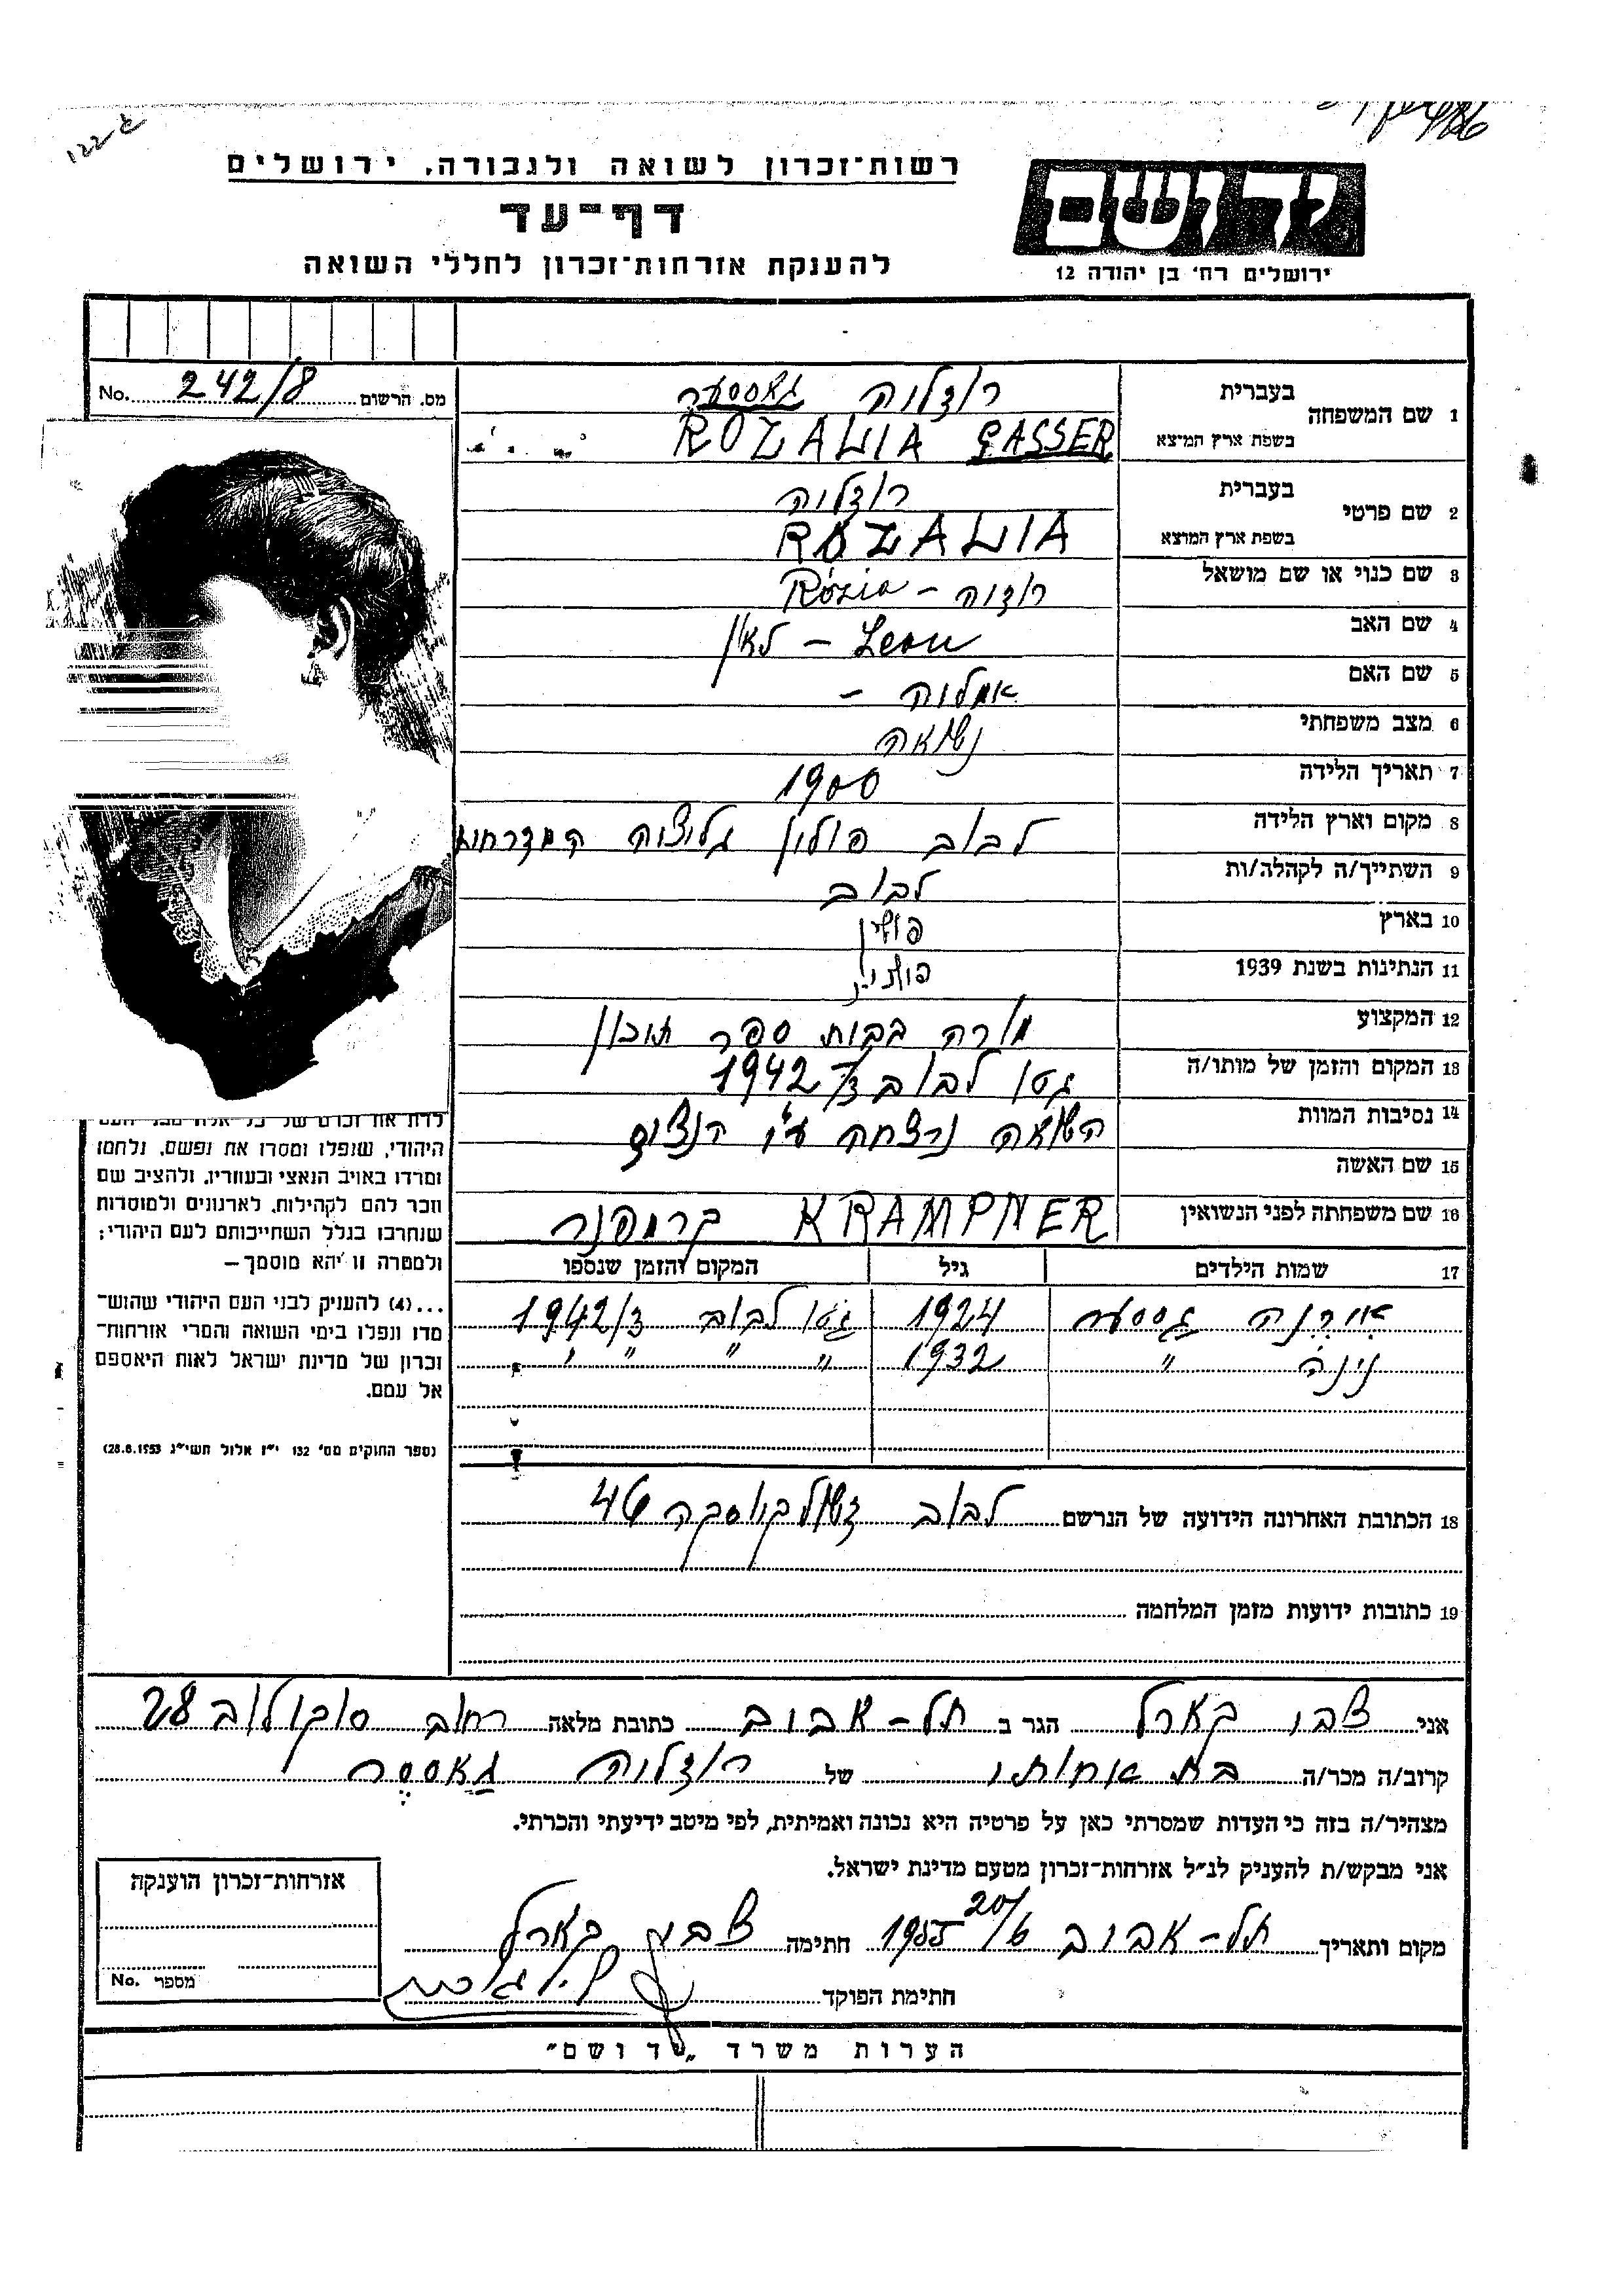 רשות־זכרון לשואה ולגבורה, ירושלים
דף־עד
להענקת אזרחות־זכרון לחללי השואה
יד ושם
ירושלים רח' בן יהודה 12
מס. הרשום 242/8 No.
1 שם המשפחה בעברית רוזליה גאססער
בשפת ארץ המוצא ROZALIA GASSER
2 שם פרטי בעברית רוזליה
בשפת ארץ המוצא ROZALIA
3 שם כנוי או שם מושאל רוזיה – Rózia
4 שם האב Leon – לאון
5 שם האם אמליה –
6 מצב משפחתי נשואה
7 תאריך הלידה 1900
8 מקום וארץ הלידה לבוב פולין גליציה המזרחית
9 השתייך/ה לקהלה/ות לבוב
10 בארץ פולין
11 הנתינות בשנת 1939 פולנית
12 המקצוע מורה בבית ספר תיכון
13 המקום והזמן של מותו/ה גטו לבוב 1942
14 נסיבות המוות השואה נרצחה ע"י הנצים
15 שם האשה
16 שם משפחתה לפני הנשואין KRAMPNER קרמפנר
17 שמות הילדים גיל המקום והזמן שנספו
אירנה גססער 1924 גטו לבוב 1942/3
נינה " 1932 " " "
היהודי, שנפלו ומסרו את נפשם, נלחמו
ומרדו באויב הנאצי ובעוזריו, ולהציב שם
וזכר להם לקהילות, לארגונים ולמוסדות
שנחרבו בגלל השתייכותם לעם היהודי;
ולמטרה זו יהא מוסמך –
...(4) להעניק לבני העם היהודי שהוש־
מדו ונפלו בימי השואה והמרי אזרחות־
זכרון של מדינת ישראל לאות היאספם
אל עמם.
(ספר החוקים מס' 132 י"ז אלול תשי"ג 28.8.1953)
18 הכתובת האחרונה הידועה של הנרשם לבוב 46
19 כתובות ידועות מזמן המלחמה
אני צבי קארל הגר ב תל-אביב כתובת מלאה רחוב סוקולוב 28
קרוב/ה מכר/ה בת אחותי של רוזליה גאססר
מצהיר/ה בזה כי העדות שמסרתי כאן על פרטיה היא נכונה ואמיתית, לפי מיטב ידיעתי והכרתי.
אני מבקש/ת להעניק לנ"ל אזרחות־זכרון מטעם מדינת ישראל.
מקום ותאריך תל-אביב 20/6 1955 חתימה צבי קארל
חתימת הפוקד
אזרחות־זכרון הוענקה
מספר No.
הערות משרד "יד ושם"